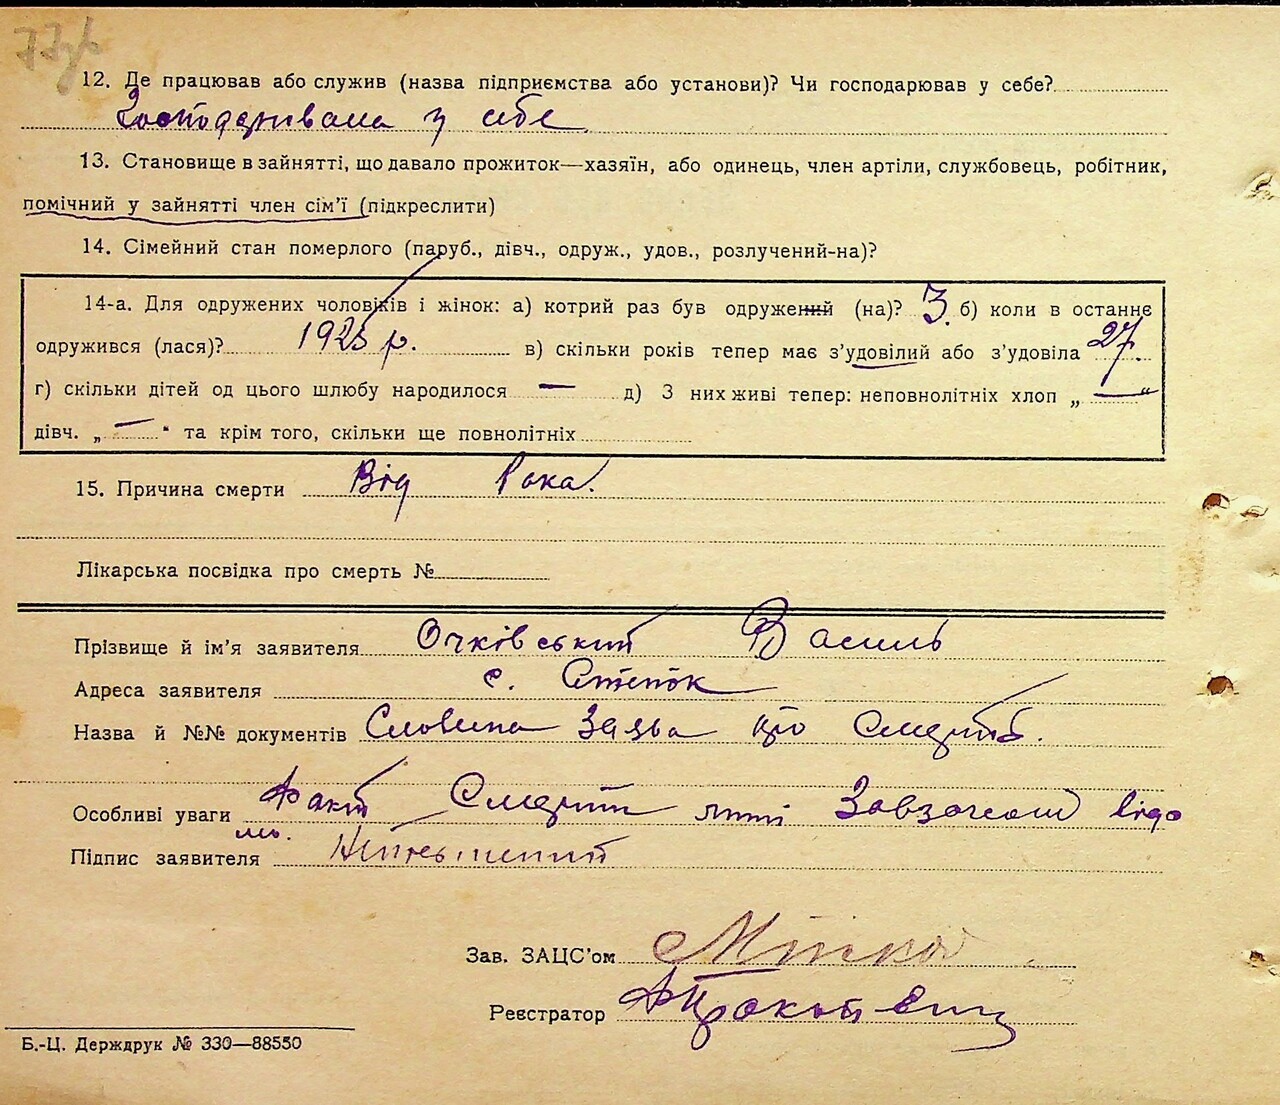 12. Де працював або служив (назва підприємства або установи)? Чи господарював у себе?
Господарювала у себе
13. Становище в зайнятті, що давало прожиток—хазяїн, або одинець, член артіли, службовець, робітник,
помічний у зайнятті член сім'ї (підкреслити)
14. Сімейний стан померлого (паруб., дівч., одруж., удов., розлучений-на)?
14-а. Для одружених чоловіків і жінок: а) котрий раз був одружений (на)? 3. б) коли в останнє
одружився (лася)? 1925 р. в) скільки років тепер має з'удовілий або з'удовіла 27.
г) скільки дітей од цього шлюбу народилося — д) З них живі тепер: неповнолітніх хлоп „ — "
дівч. „ — " та крім того, скільки ще повнолітніх
15. Причина смерти Від Рока.
Лікарська посвідка про смерть №
Прізвище й ім'я заявителя Очківський Василь
Адреса заявителя с. Степок
Назва й №№ документів Словесна Заява про Смерть.
Особливі уваги Факт Смерти мені відо
мо.
Підпис заявителя
Зав. ЗАЦС'ом
Реєстратор
Б.-Ц. Держдрук № 330—88550